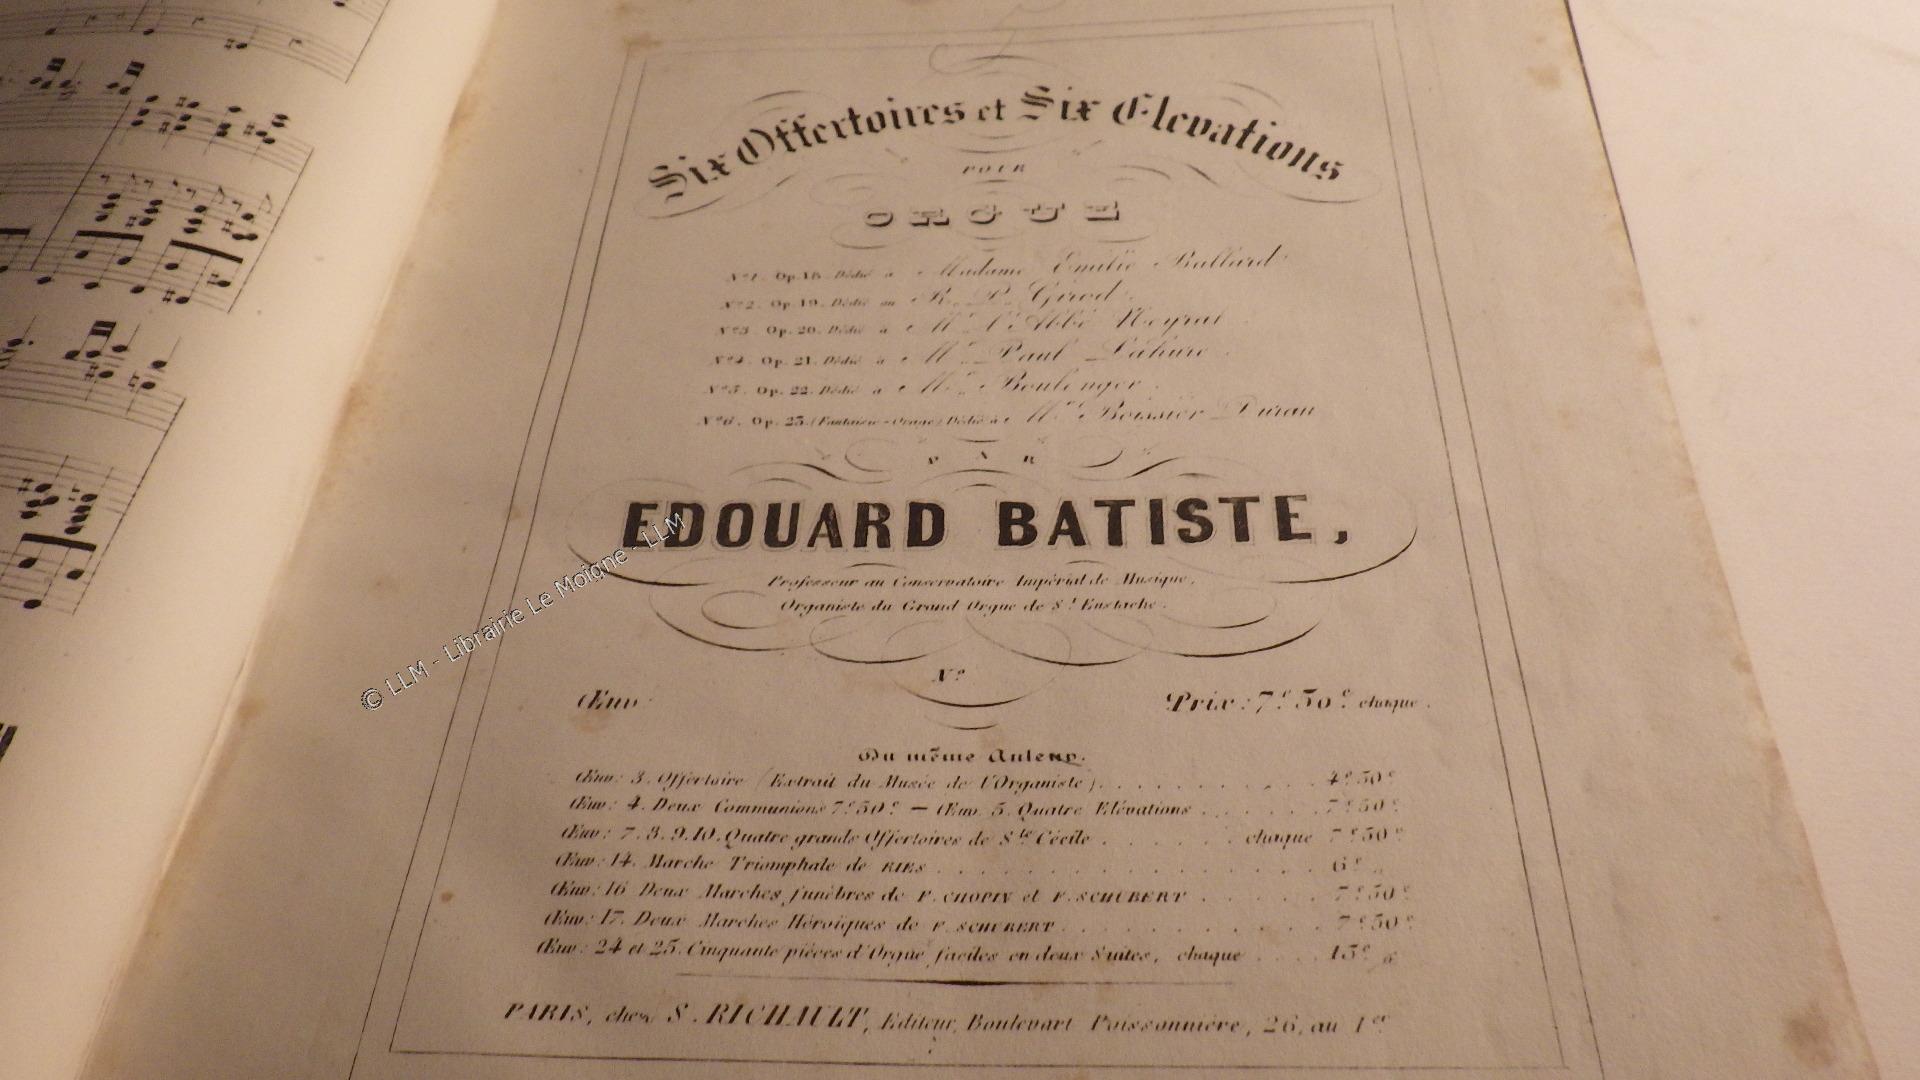 Six Offertoires et Six Elevations
POUR
ORGUE
Nº1. Op.18. Dédié à Madame Emilie Ballard
Nº2. Op.19. Dédié au R. P. Girod.
Nº3. Op. 20. Dédié à Mr L'Abbé Neyrat
Nº4. Op. 21. Dédié à Mr Paul Lahure.
Nº5. Op. 22. Dédié à Boulenger.
Nº6. Op. 23. (Fantaisie-Orage) Dédié à Boissier Duran
PAR
EDOUARD BATISTE,
Professeur au Conservatoire Impérial de Musique,
Organiste du Grand Orgue de St Eustache.
Nº
Œuv: Prix: 7f 50c chaque.
Du même Auteur.
Œuv: 3. Offertoire (Extrait du Musée de L'Organiste) . . . . 4f 50c
Œuv: 4. Deux Communions 7f 50c — Œuv. 5. Quatre Elévations . . . . 7f 50c
Œuv: 7. 8. 9. 10. Quatre grands Offertoires de Ste Cécile . . . . chaque 7f 50c
Œuv: 14. Marche Triomphale de RIES . . . . 6f
Œuv: 16 Deux Marches funèbres de F. CHOPIN et F. SCHUBERT . . . . 7f 50c
Œuv: 17. Deux Marches Héroïques de F. SCHUBERT . . . . 7f 50c
Œuv: 24 et 25. Cinquante pièces d'Orgue faciles en deux Suites, chaque . . . . 15f
PARIS, chez S. RICHAULT, Editeur, Boulevart Poissonnière, 26, au 1er
© LLM - Librairie Le Moigne - LLM